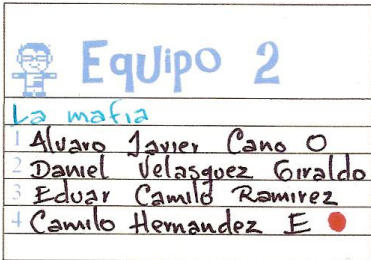 Equipo 2
La mafia
1 Alvaro Javier Cano O
2 Daniel Velasquez Giraldo
3 Eduar Camilo Ramirez
4 Camilo Hernandez E